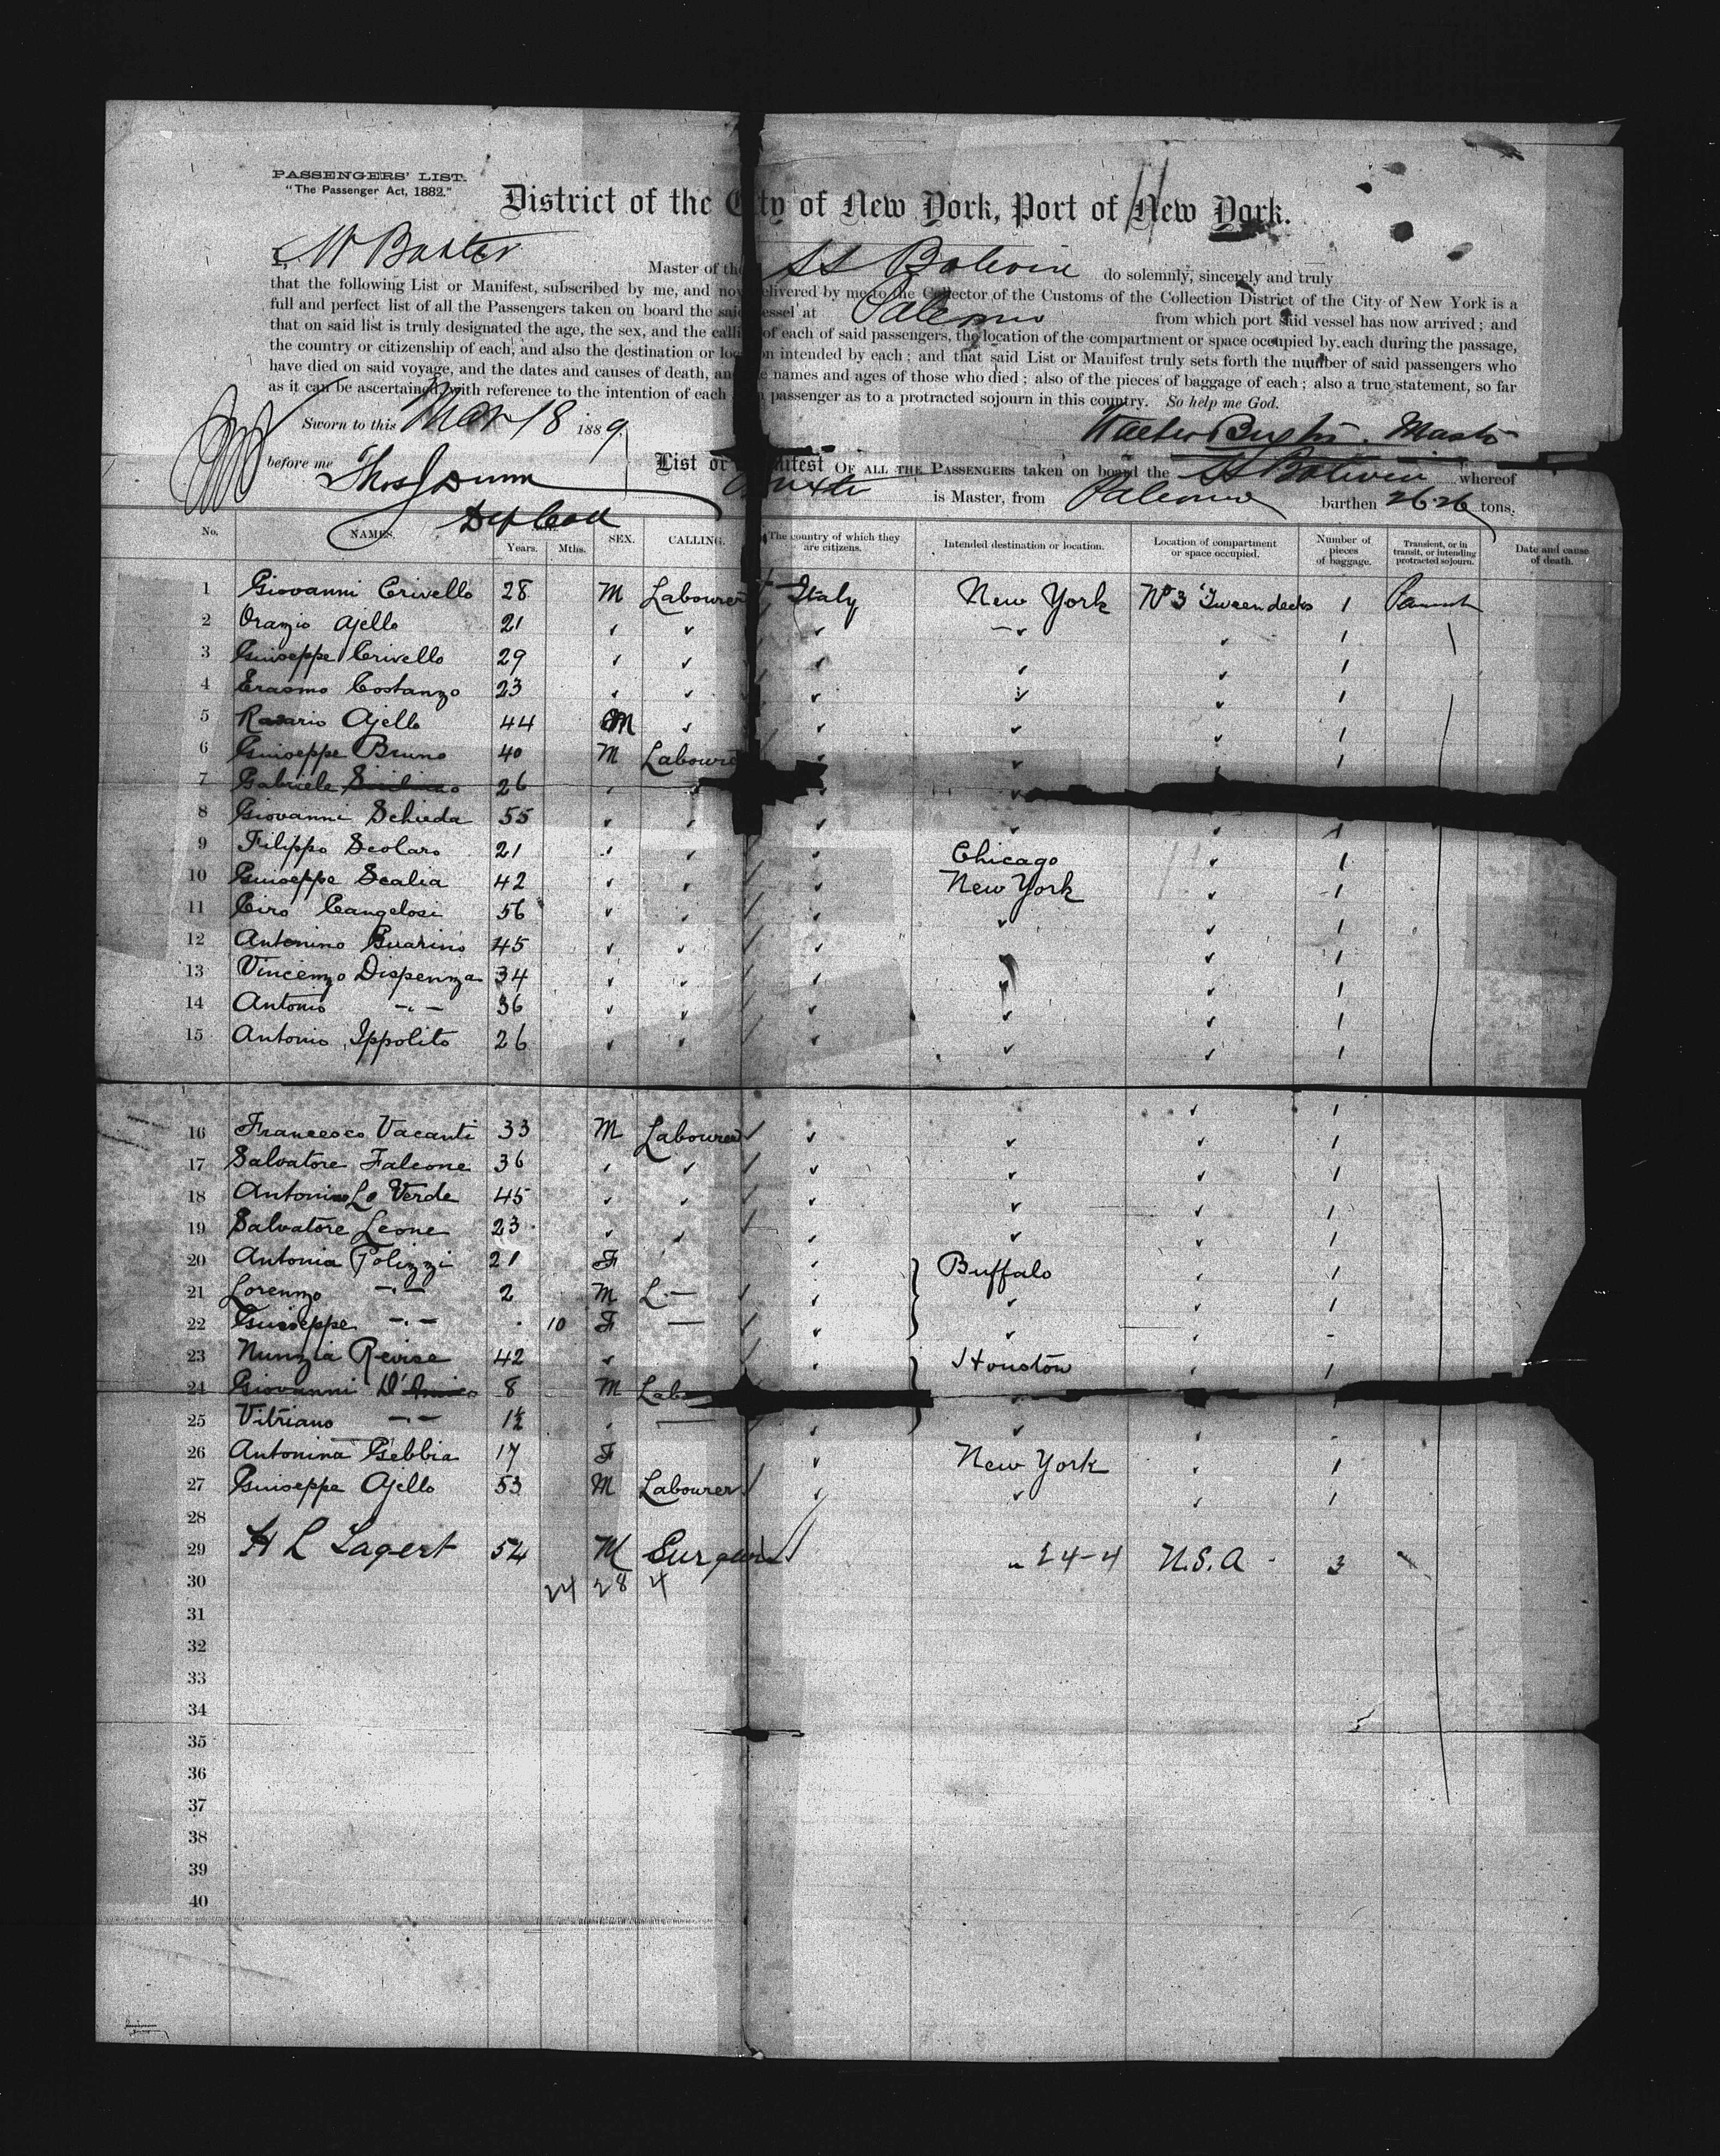 PASSENGERS' LIST.
"The Passenger Act, 1882."
District of the City of New York, Port of New York.
I, W Baxter Master of the SS Bolivia do solemnly, sincerely and truly
that the following List or Manifest, subscribed by me, and now delivered by me to the Collector of the Customs of the Collection District of the City of New York is a
full and perfect list of all the Passengers taken on board the said vessel at Palermo from which port said vessel has now arrived; and
that on said list is truly designated the age, the sex, and the calling of each of said passengers, the location of the compartment or space occupied by each during the passage,
the country or citizenship of each, and also the destination or location intended by each; and that said List or Manifest truly sets forth the number of said passengers who
have died on said voyage, and the dates and causes of death, and the names and ages of those who died; also of the pieces of baggage of each; also a true statement, so far
as it can be ascertained, with reference to the intention of each passenger as to a protracted sojourn in this country. So help me God.
Sworn to this Mar 18 1889
Walter Baxter. Master
before me Thos J Dunn
Dep Coll
List or Manifest OF ALL THE PASSENGERS taken on board the SS Bolivia whereof
Baxter is Master, from Palermo burthen 2626 tons.
No. NAMES. Years. Mths. SEX. CALLING. The country of which they are citizens. Intended destination or location. Location of compartment or space occupied. Number of pieces of baggage. Transient, or in transit, or intending protracted sojourn. Date and cause of death.
1 Giovanni Crivello 28 M Labourer Italy New York No 3 Tween decks 1
2 Orazio Ajello 21 1
3 Guiseppe Crivello 29 1
4 Erasmo Costanzo 23 1
5 Rosario Ajello 44 M 1
6 Guiseppe Bruno 40 M Labourer 1
7 Gabriele 26
8 Giovanni Schieda 55 1
9 Filippo Scolaro 21 Chicago 1
10 Guiseppe Scalia 42 New York 1
11 Ciro Cangelosi 56 1
12 Antonino Guarino 45 1
13 Vincenzo Dispenza 34 1
14 Antonio -"- 36 1
15 Antonio Ippolito 26 1
16 Francesco Vacanti 33 M Labourer 1
17 Salvatore Falcone 36 1
18 Antonino Lo Verde 45 1
19 Salvatore Leone 23 1
20 Antonia Polizzi 21 F Buffalo 1
21 Lorenzo -"- 2 M L - 1
22 Guiseppe -"- 10 F - -
23 Nunzia Revise 42 Houston 1
24 Giovanni D'Amico 8 M Lab
25 Vitriano -"- 1½ - -
26 Antonina Gebbia 17 F New York 1
27 Guiseppe Ajello 53 M Labourer 1
28
29 H L Sagert 54 M Surgeon 24-4 U.S.A - 3
30 24 28 4
31
32
33
34
35
36
37
38
39
40